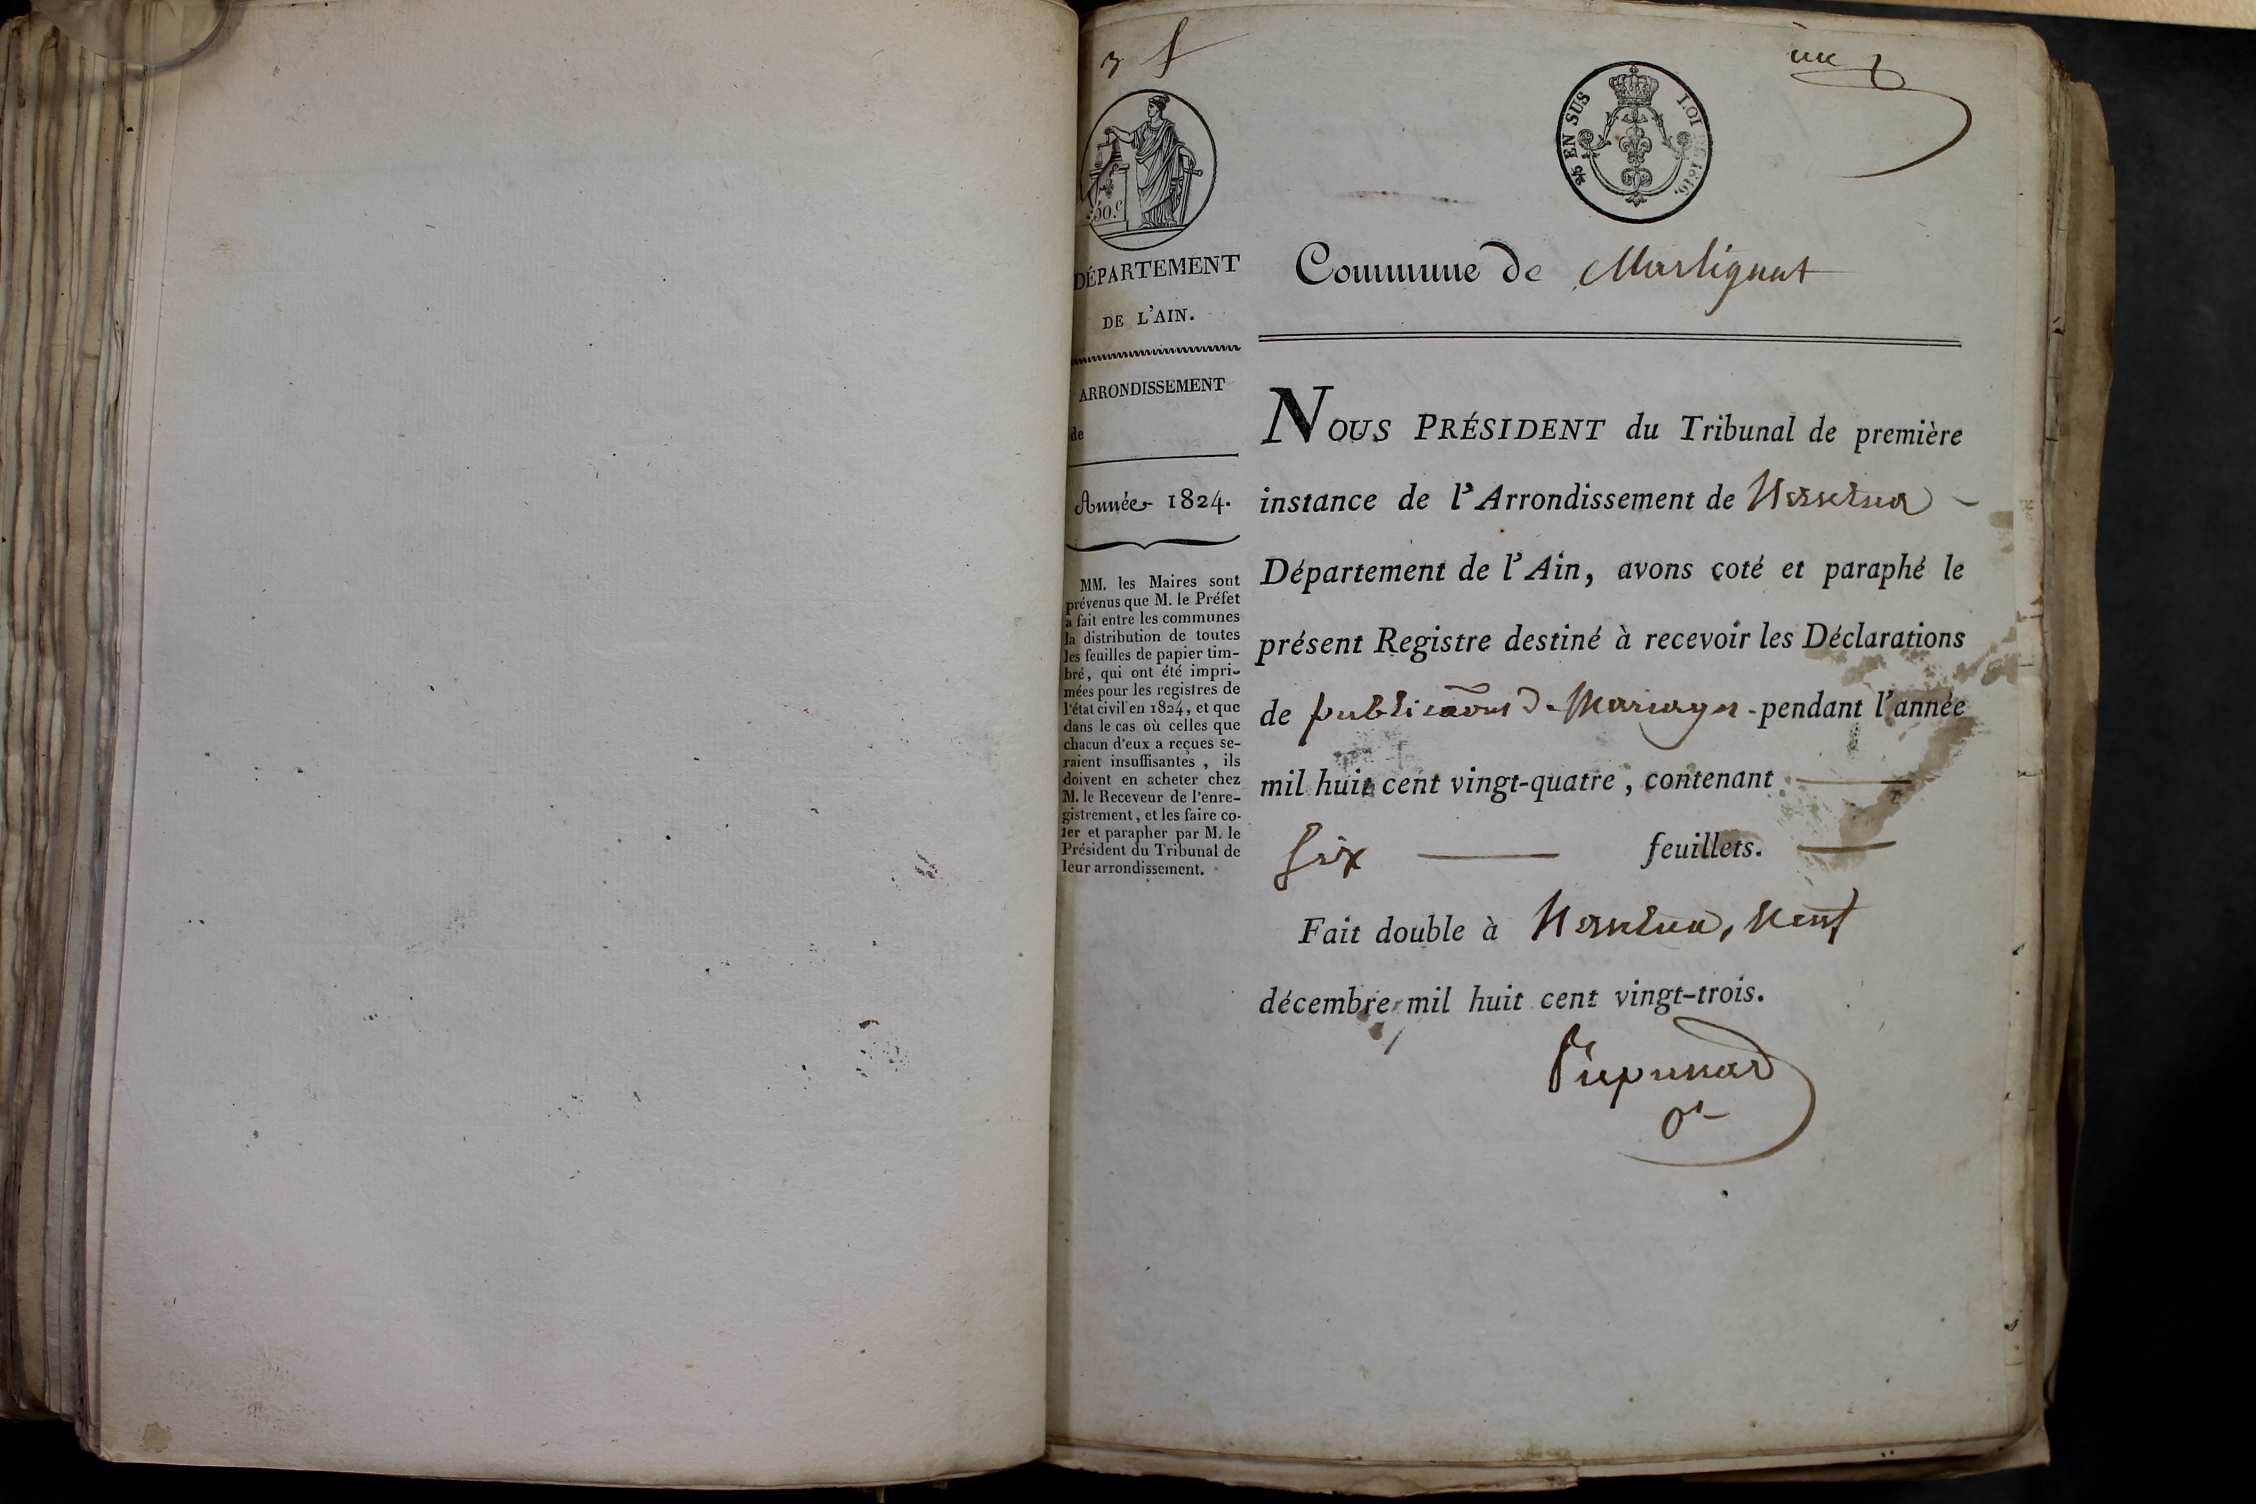 3 f
un
50.c
2/5 EN SUS
LOI DE 1816.
DÉPARTEMENT
DE L'AIN.
ARRONDISSEMENT
de
Année 1824.
MM. les Maires sont
prévenus que M. le Préfet
a fait entre les communes
la distribution de toutes
les feuilles de papier tim-
bré, qui ont été impri-
mées pour les registres de
l'état civil en 1824, et que
dans le cas où celles que
chacun d'eux a reçues se-
raient insuffisantes, ils
doivent en acheter chez
M. le Receveur de l'enre-
gistrement, et les faire co-
ter et parapher par M. le
Président du Tribunal de
leur arrondissement.
Commune de Martignat
NOUS PRÉSIDENT du Tribunal de première
instance de l'Arrondissement de Nantua
Département de l'Ain, avons coté et paraphé le
présent Registre destiné à recevoir les Déclarations
de publications de Mariages pendant l'année
mil huit cent vingt-quatre, contenant
six feuillets.
Fait double à Nantua, neuf
décembre mil huit cent vingt-trois.